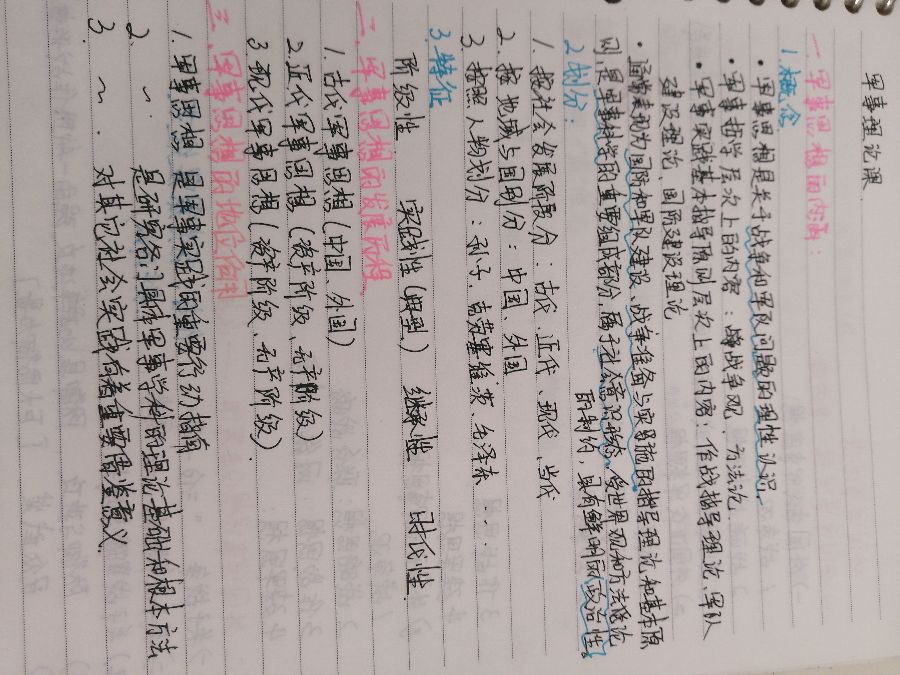 军事理论课
一、军事思想的内涵：
1. 概念
• 军事思想是关于战争和军队问题的理性认识.
• 军事哲学层次上的内容：战争观、方法论
• 军事实践基本指导原则层次上的内容：作战指导理论、军队
建设理论、国防建设理论
• 通常表现为国防和军队建设、战争准备与实施的指导理论和基本原
则，是军事科学的重要组成部分，属于社会意识形态，受世界观和方法论
的制约，具有鲜明的政治性
2. 划分：
1. 按社会发展阶段分：古代、近代、现代、当代
2. 按地域与国别分：中国、外国
3. 按照人物划分：孙子、克劳塞维茨、毛泽东
3. 特征
阶级性 实践性（典型） 继承性 时代性
二、军事思想的发展历程
1. 古代军事思想（中国、外国）
2. 近代军事思想（资产阶级、无产阶级）
3. 现代军事思想（资产阶级、无产阶级）
三、军事思想的地位作用
1. 军事思想 是军事实践的重要行动指南
2. ~ 是研究各门具体军事学科的理论基础和根本方法
3. ~ . 对其它社会实践有着重要借鉴意义.